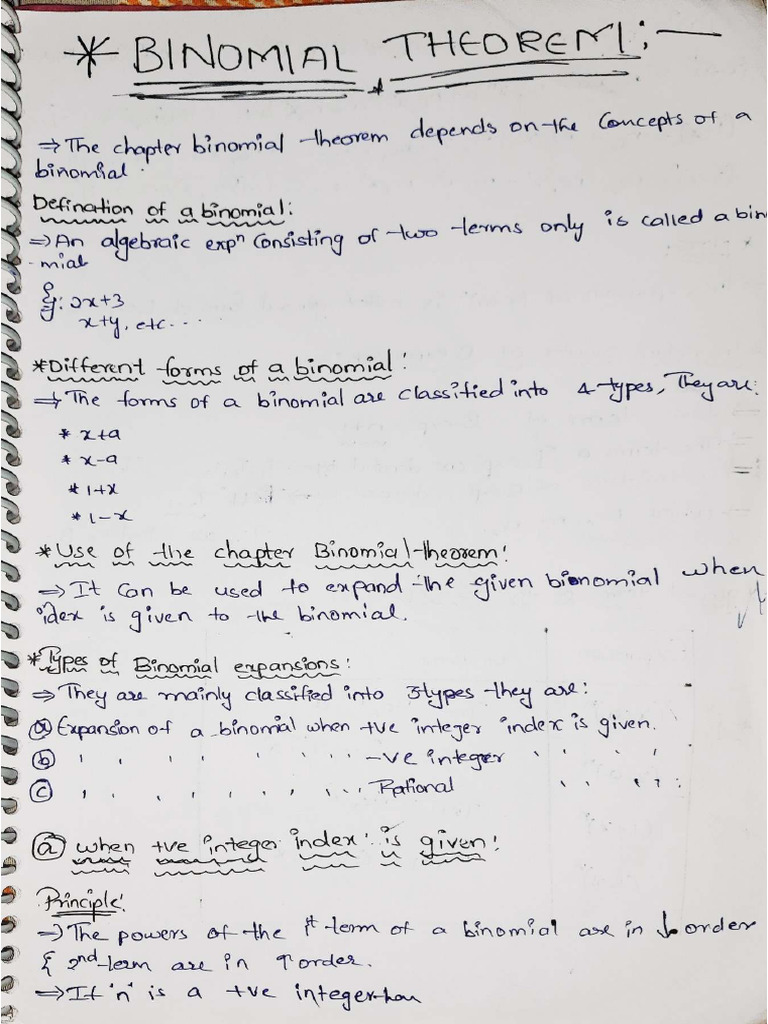 * BINOMIAL THEOREM :—
⇒ The chapter binomial theorem depends on the Concepts of a
binomial.
Defination of a binomial:
⇒ An algebraic expⁿ Consisting of two terms only is called a bin
-mial
Eg: 2x+3
x+y, etc...
*Different forms of a binomial:
⇒ The forms of a binomial are classified into 4-types, They are:
* x+a
* x-a
* 1+x
* 1-x
*Use of the chapter Binomial theorem:
⇒ It can be used to expand the given bionomial when
idex is given to the binomial.
*Types of Binomial expansions:
⇒ They are mainly classified into 3types they are:
ⓐ Expansion of a binomial when +ve integer index is given.
ⓑ ' ' ' ' ' ' ' ' -ve integer ' ' ' '
ⓒ , , , , , , , . . . Rational ' ' ' ' :
ⓐ when +ve integer index is given:
Principle:
⇒ The powers of the 1st term of a binomial are in ↓ order
& 2nd term are in ↑ order.
⇒ If 'n' is a +ve integer than